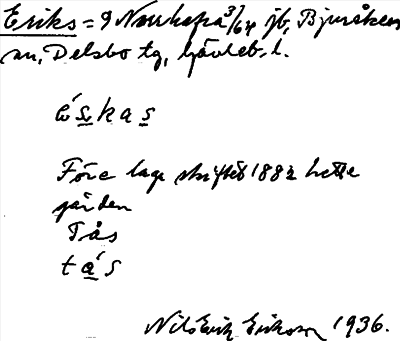 Eriks = 9 Norrhopa 3/64 jb, Bjuråkers
sn, Delsbo tg, Gävleb. l.
é s k a s
Före laga skiftet 1882 hette
gården
Tås
t á s
Nils Erik Erikson 1936.